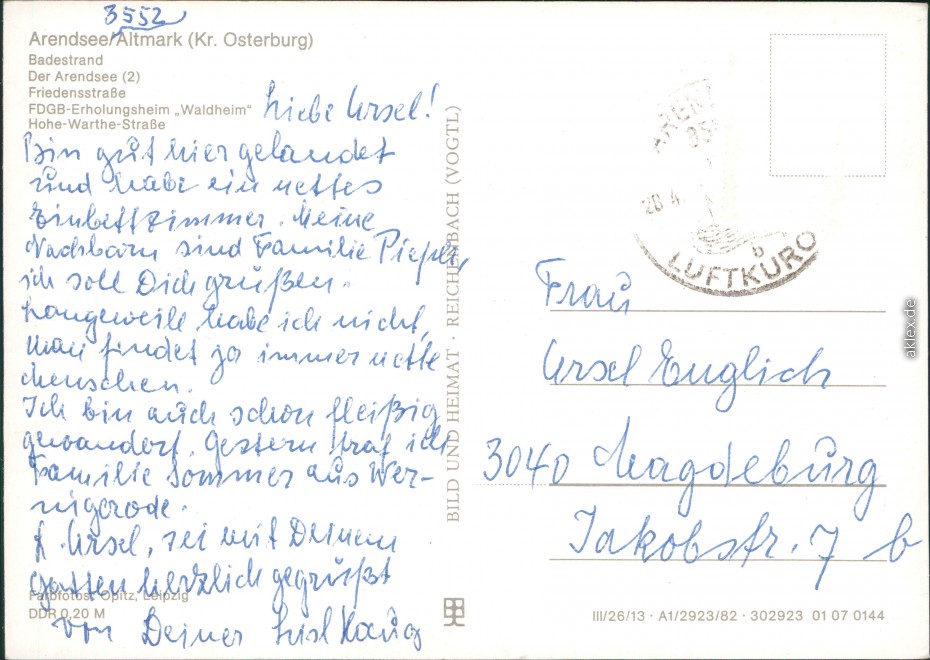 3552
Arendsee/Altmark (Kr. Osterburg)
Badestrand
Der Arendsee (2)
Friedensstraße
FDGB-Erholungsheim „Waldheim“
Hohe-Warthe-Straße
Liebe Ursel!
Bin gut hier gelandet
und habe ein nettes
Einbettzimmer. Meine
Nachbarn sind Familie
ich soll Dich grüßen.
Langeweile habe ich nicht,
man findet ja immer nette
Menschen.
Ich bin auch schon fleißig
gewandert. Gestern traf ich
Familie Sommer aus Wer-
nigerode.
L. Ursel, sei mit Deinem
Gatten herzlich gegrüßt
von Deiner
Farbfotos: Opitz, Leipzig
DDR 0,20 M
BILD UND HEIMAT · REICHENBACH (VOGTL)
28 4.
b
LUFTKURO
Frau
Ursel Englich
3040 Magdeburg
Jakobstr. 7 b
III/26/13 · A1/2923/82 · 302923 01 07 0144
aklex.de